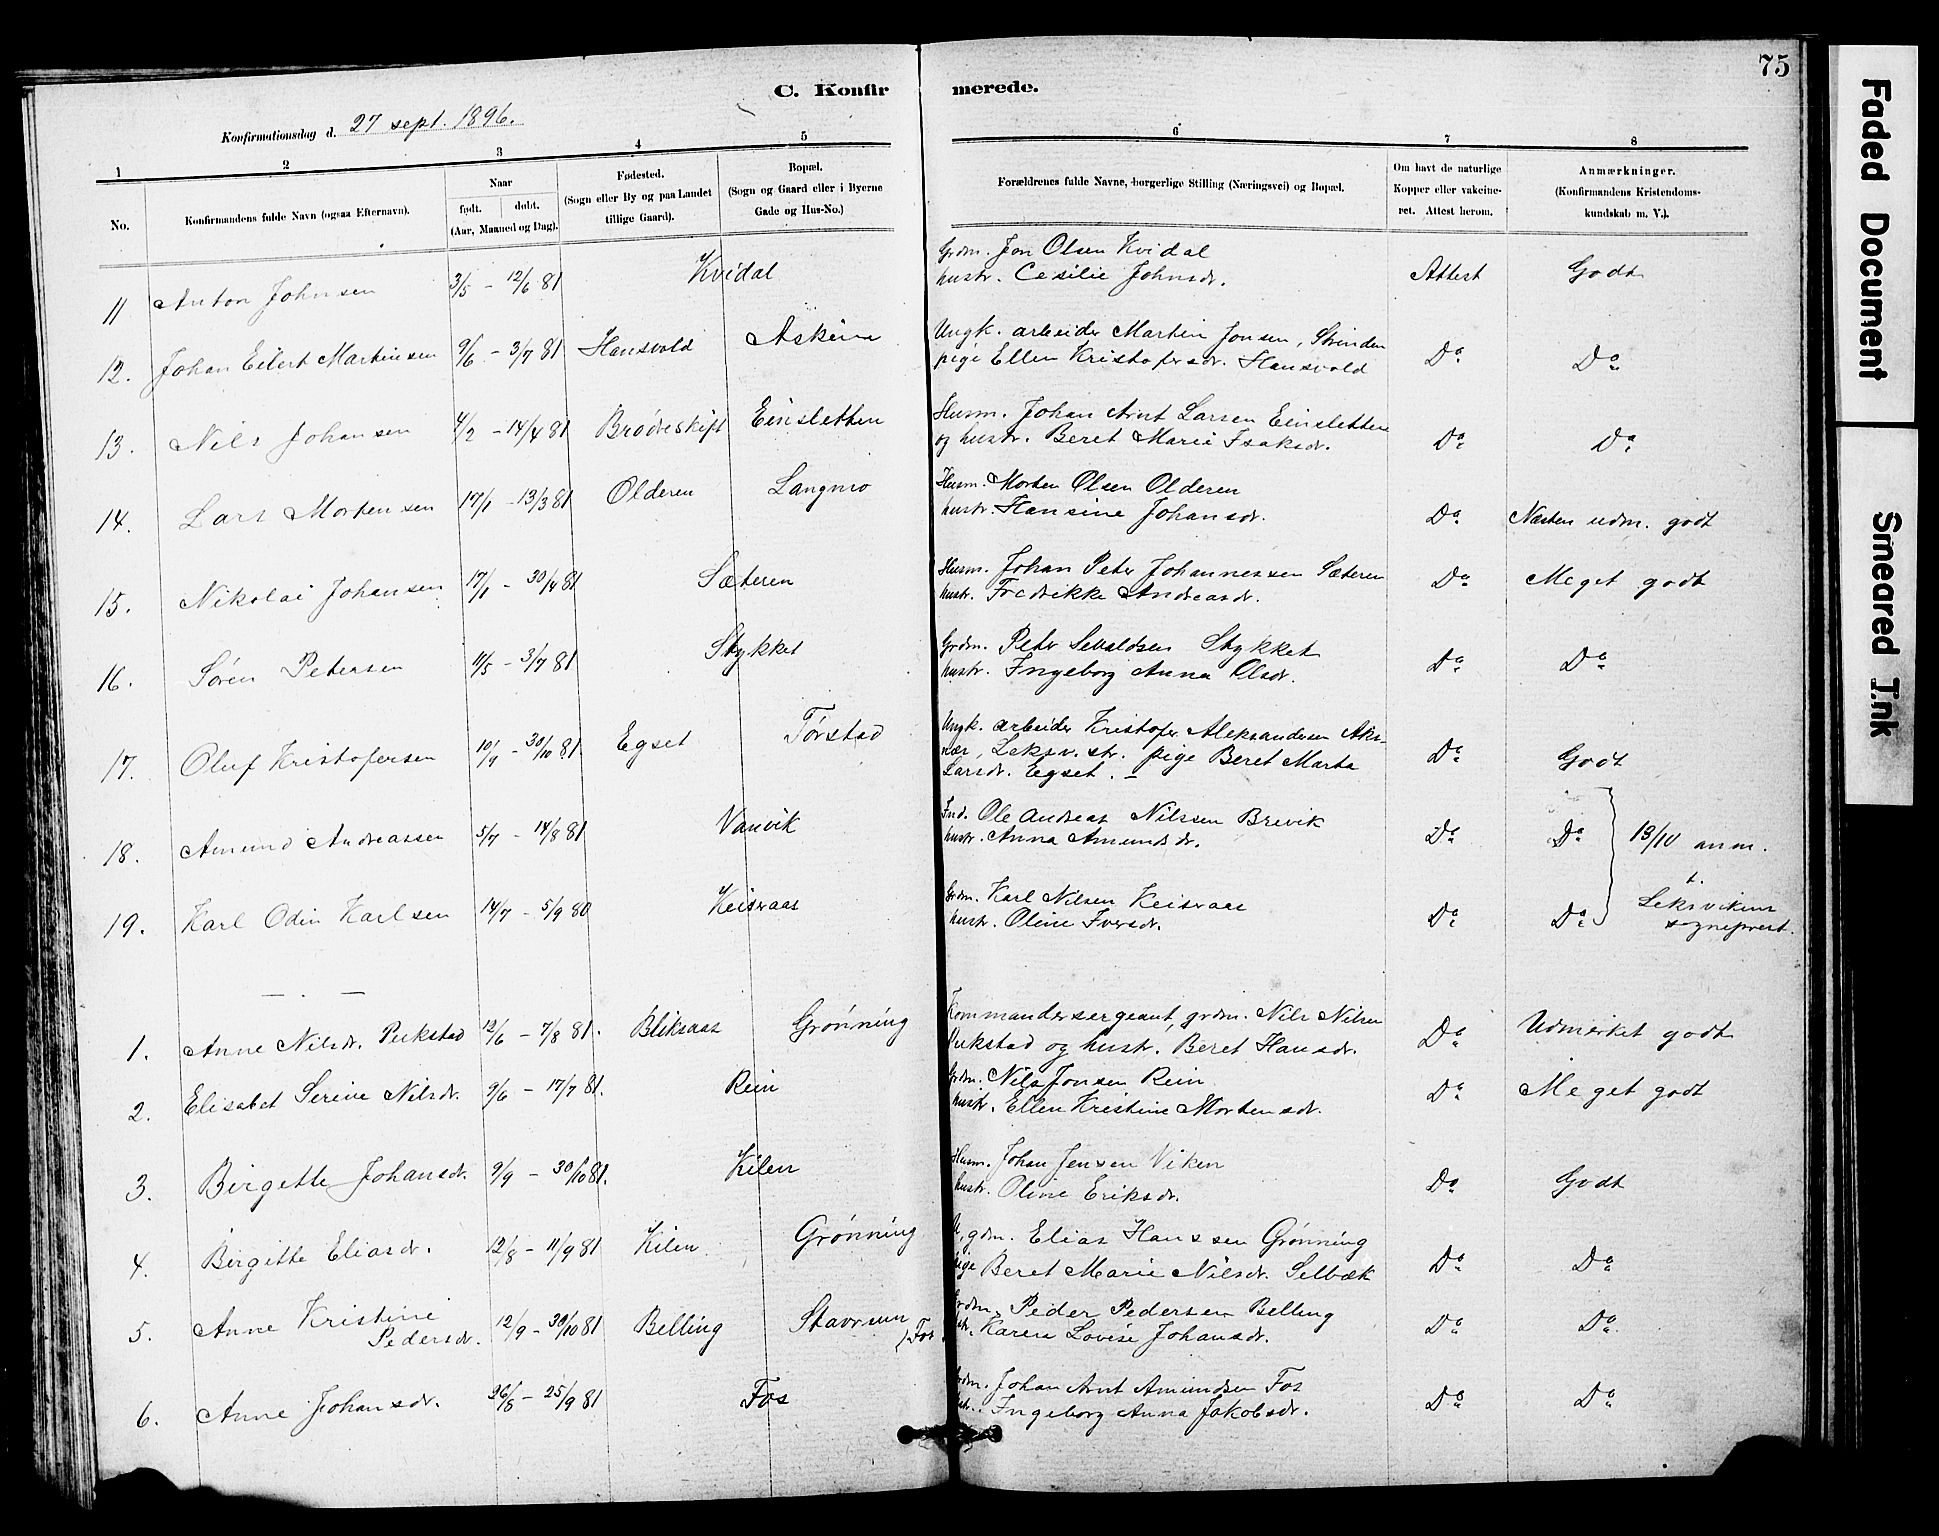 75
C. Konfirmerede.
Konfirmationsdag d. 27 sept. 1896.
1 2 3 4 5 6 7 8
No.
Konfirmandens fulde Navn (ogsaa Efternavn).
Naar
født. døbt.
(Aar, Maaned og Dag).
Fødested.
(Sogn eller By og paa Landet
tillige Gaard).
Bopæl.
(Sogn og Gaard eller i Byerne
Gade og Hus-No.)
Forældrenes fulde Navne, borgerlige Stilling (Næringsvei) og Bopæl.
Om havt de naturlige
Kopper eller vakcine-
ret. Attest herom.
Anmærkninger.
(Konfirmandens Kristendoms-
kundskab m. V.).
11 Anton Johnsen 3/5 – 12/6 81 Kvidal
Grdm. Jon Olsen Kvidal
hustr. Cesilie Johnsdr. Attest Godt
12. Johan Eilert Martinsen 9/6 – 3/7 81 Hansvold Askeim
Ungk. arbeider Martin Jonsen, Strinden
pige Ellen Kristofersdr. Hansvold Do Do
13. Nils Johansen 4/2 – 14/4 81 Brødreskift Einsletten
Husm. Johan Arnt Larsen Einsletten
og hustr. Beret Marie Isaksdr. Do Do
14. Lars Mortensen 17/1 – 13/3 81 Olderen Langmo
Husm. Morten Olsen Olderen
hustr. Hansine Johansdr. Do Næsten udm. godt
15. Nikolai Johansen 17/1 – 30/4 81 Sæteren
Husm. Johan Peter Johannessen Sæteren
hustr. Fredrikke Andreasdr. Do Meget godt
16. Søren Petersen 11/5 – 3/7 81 Stykket
Grdm. Peter Sevaldsen Stykket
hustr. Ingeborg Anna Olsdr. Do Do
17. Oluf Kristofersen 10/9 – 30/10 81 Egset Tørstad
Ungk. arbeider Kristofer Aleksandersen Aks-
nær, Leksv. str. pige Beret Marta
Larsdr. Egset. – Do Godt
18. Amund Andreassen 5/7 – 14/8 81 Vanvik
Ind. Ole Andreas Nilssen Brevik
hustr. Anna Amundsdr. Do Do 13/10 anm.
t.
19. Karl Odin Karlsen 14/7 – 5/9 80 Keisraas
Grdm. Karl Nilsen Keisraas
hustr. Oline Iversdr. Do Do Leksvikens
sogneprest.
— . —
1. Anne Nilsdr. Pukstad 12/6 – 7/8 81. Bliksaas Grønning
Kommandersergeant, grdm. Nils Nilsen
Pukstad og hustr. Beret Hansdr. Do Udmerket godt
2. Elisabet Serine Nilsdr. 9/6 – 17/7 81. Rein
Grdm. Nils Jonsen Rein
hustr. Ellen Kristine Mortensdr. Do Meget godt
3. Birgitte Johansdr. 9/9 – 30/10 81. Kilen
Husm. Johan Jensen Viken
hustr. Oline Eriksdr. Do Godt
4. Birgitte Eliasdr. 12/8 – 11/9 81 Kilen Grønning
U, gdm. Elias Hanssen Grønning
pige Beret Marie Nilsdr. Selbæk Do Do
5. Anne Kristine
Pedersdr. 12/9 – 30/10 81 Belling Stavrum
/Fos
Grdm. Peder Pedersen Belling
hstr. Karen Lovise Johansdr. Do Do
6. Anne Johansdr. 26/8 – 25/9 81 Fos
Grdm. Johan Arnt Amundsen Fos
hstr. Ingeborg Anna Jakobsdr. Do Do
Faded Document
Smeared Ink